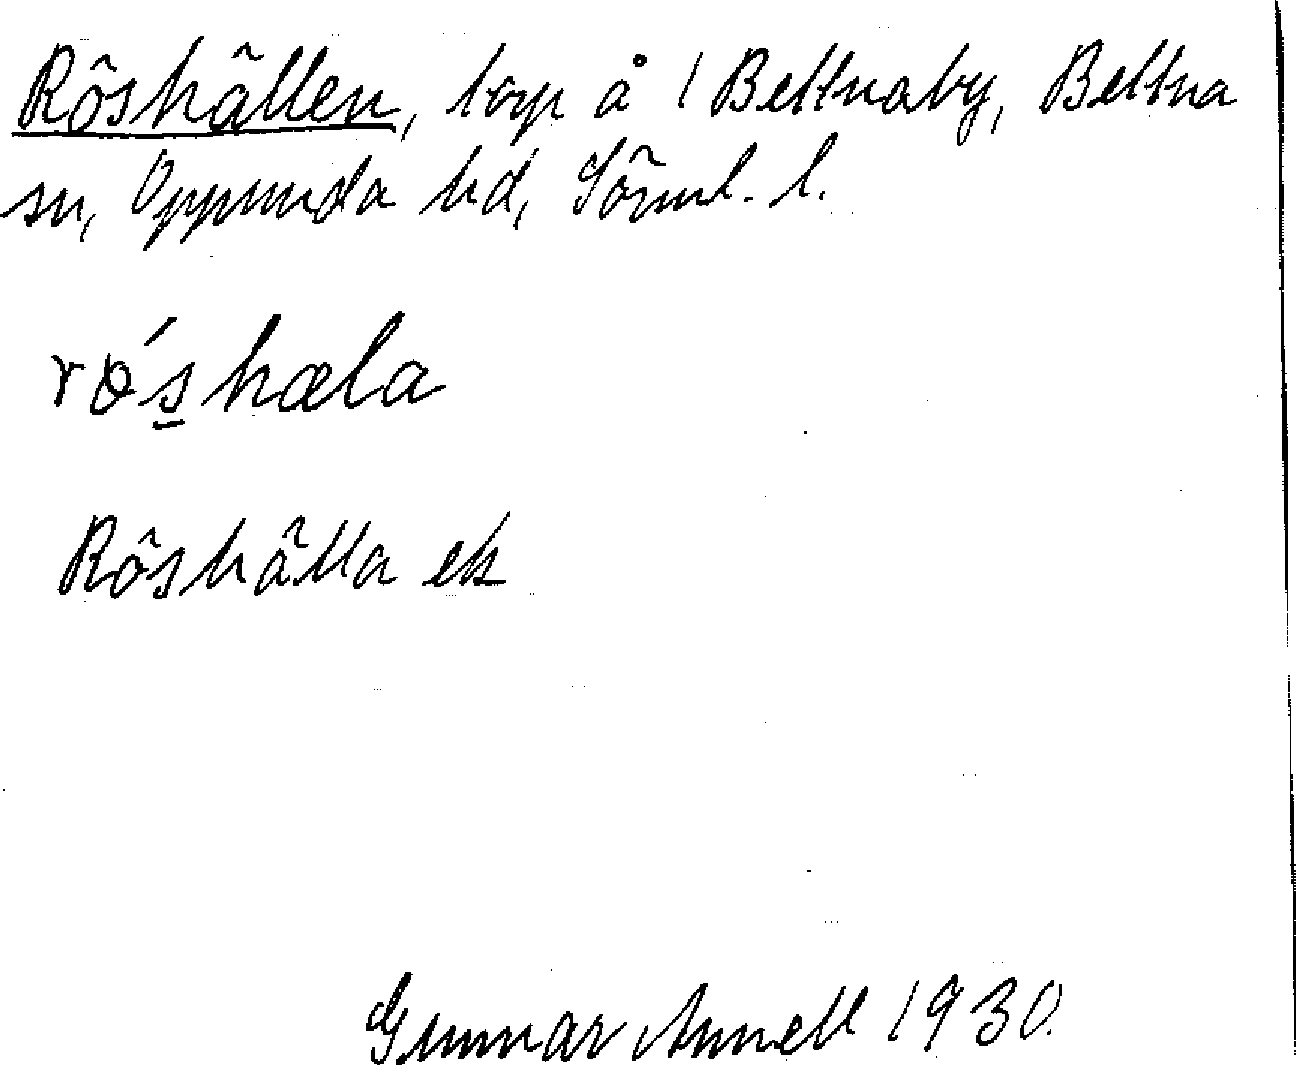 Röshällen, torp å 1 Bettnaby, Bettna
sn, Oppunda hd, Sörml. l.
rǿs̲hæla
Röshälla ek
Gunnar Annell 1930.